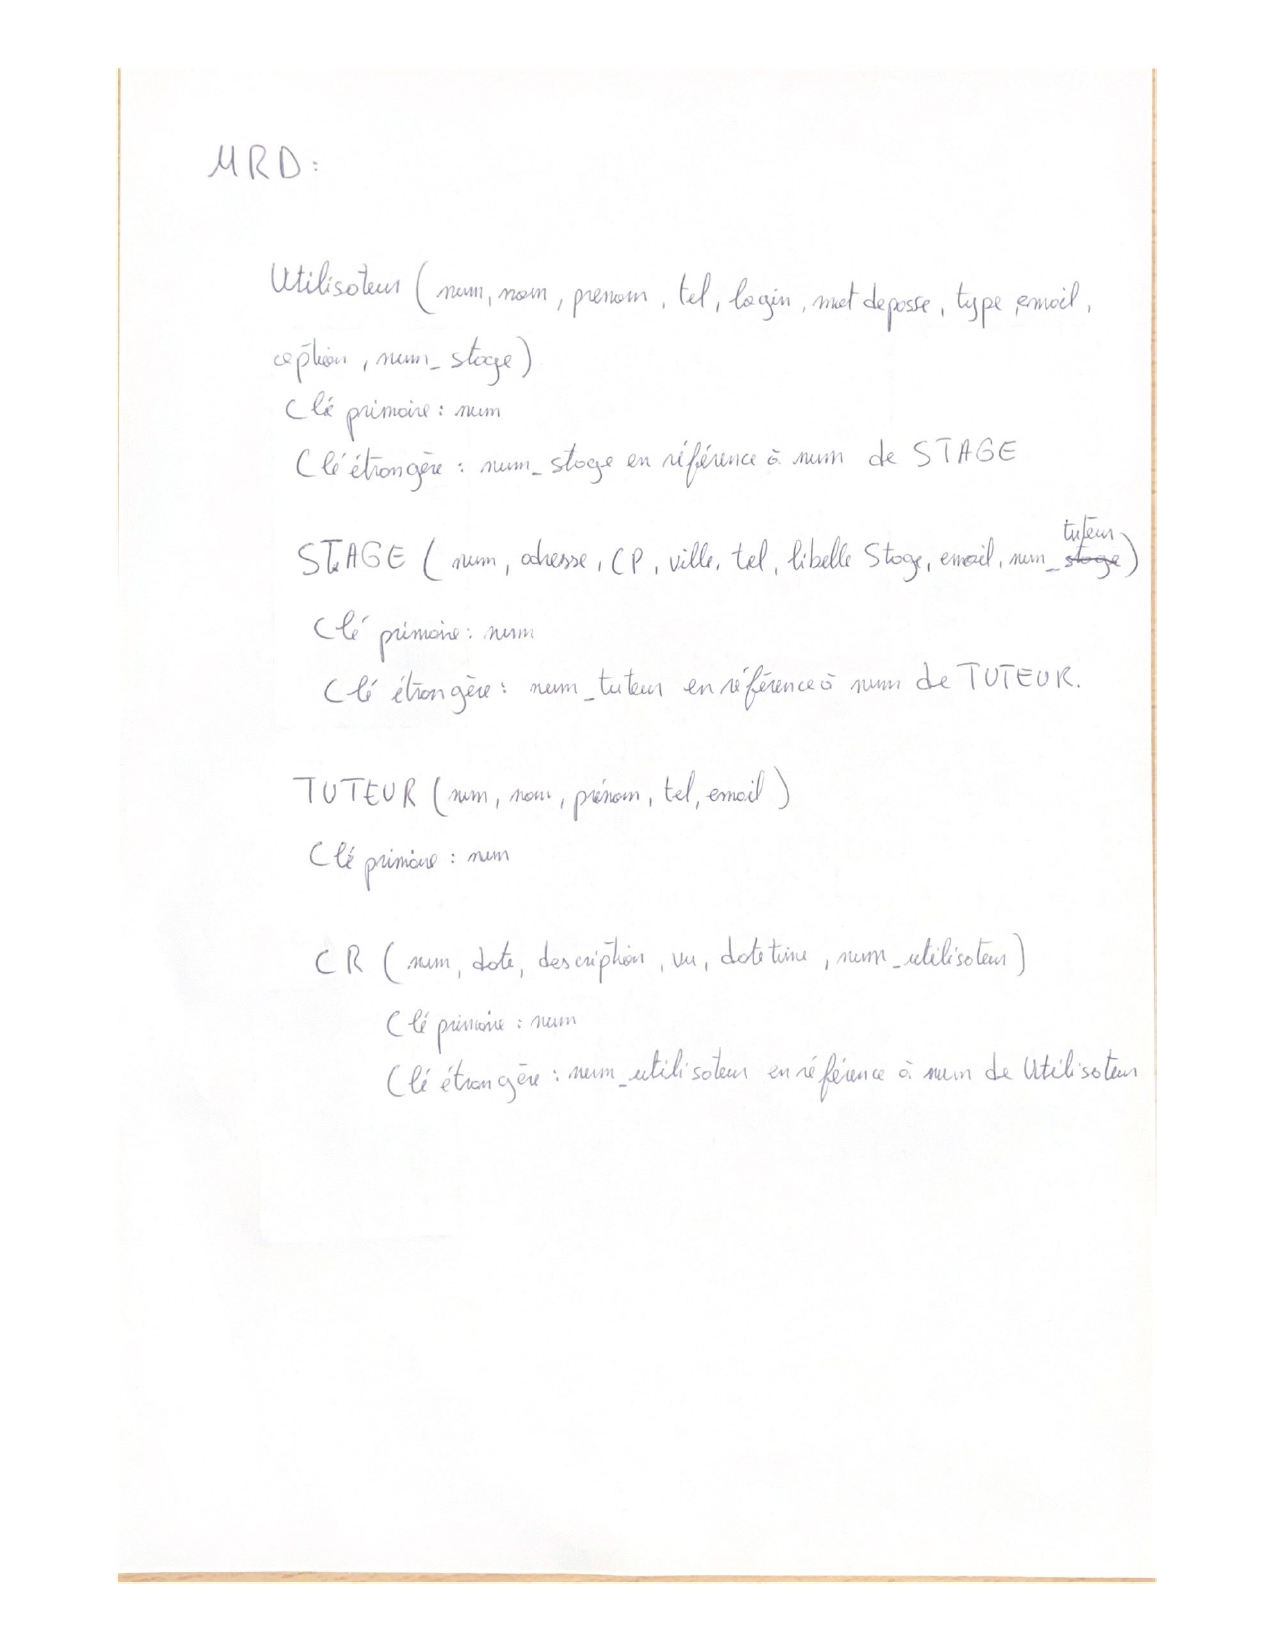 MRD:
Utilisateur (num, nom, prenom, tel, login, mot de passe, type, email,
option, num_stage)
Clé primaire: num
Clé étrangère: num_stage en référence à num de STAGE
tuteur
STAGE (num, adresse, CP, ville, tel, libelle Stage, email, num_stage)
Clé primaire: num
Clé étrangère: num_tuteur en référence à num de TUTEUR.
TUTEUR (num, nom, prénom, tel, email)
Clé primaire: num
CR (num, date, description, vu, datetime, num_utilisateur)
Clé primaire: num
Clé étrangère: num_utilisateur en référence à num de Utilisateur